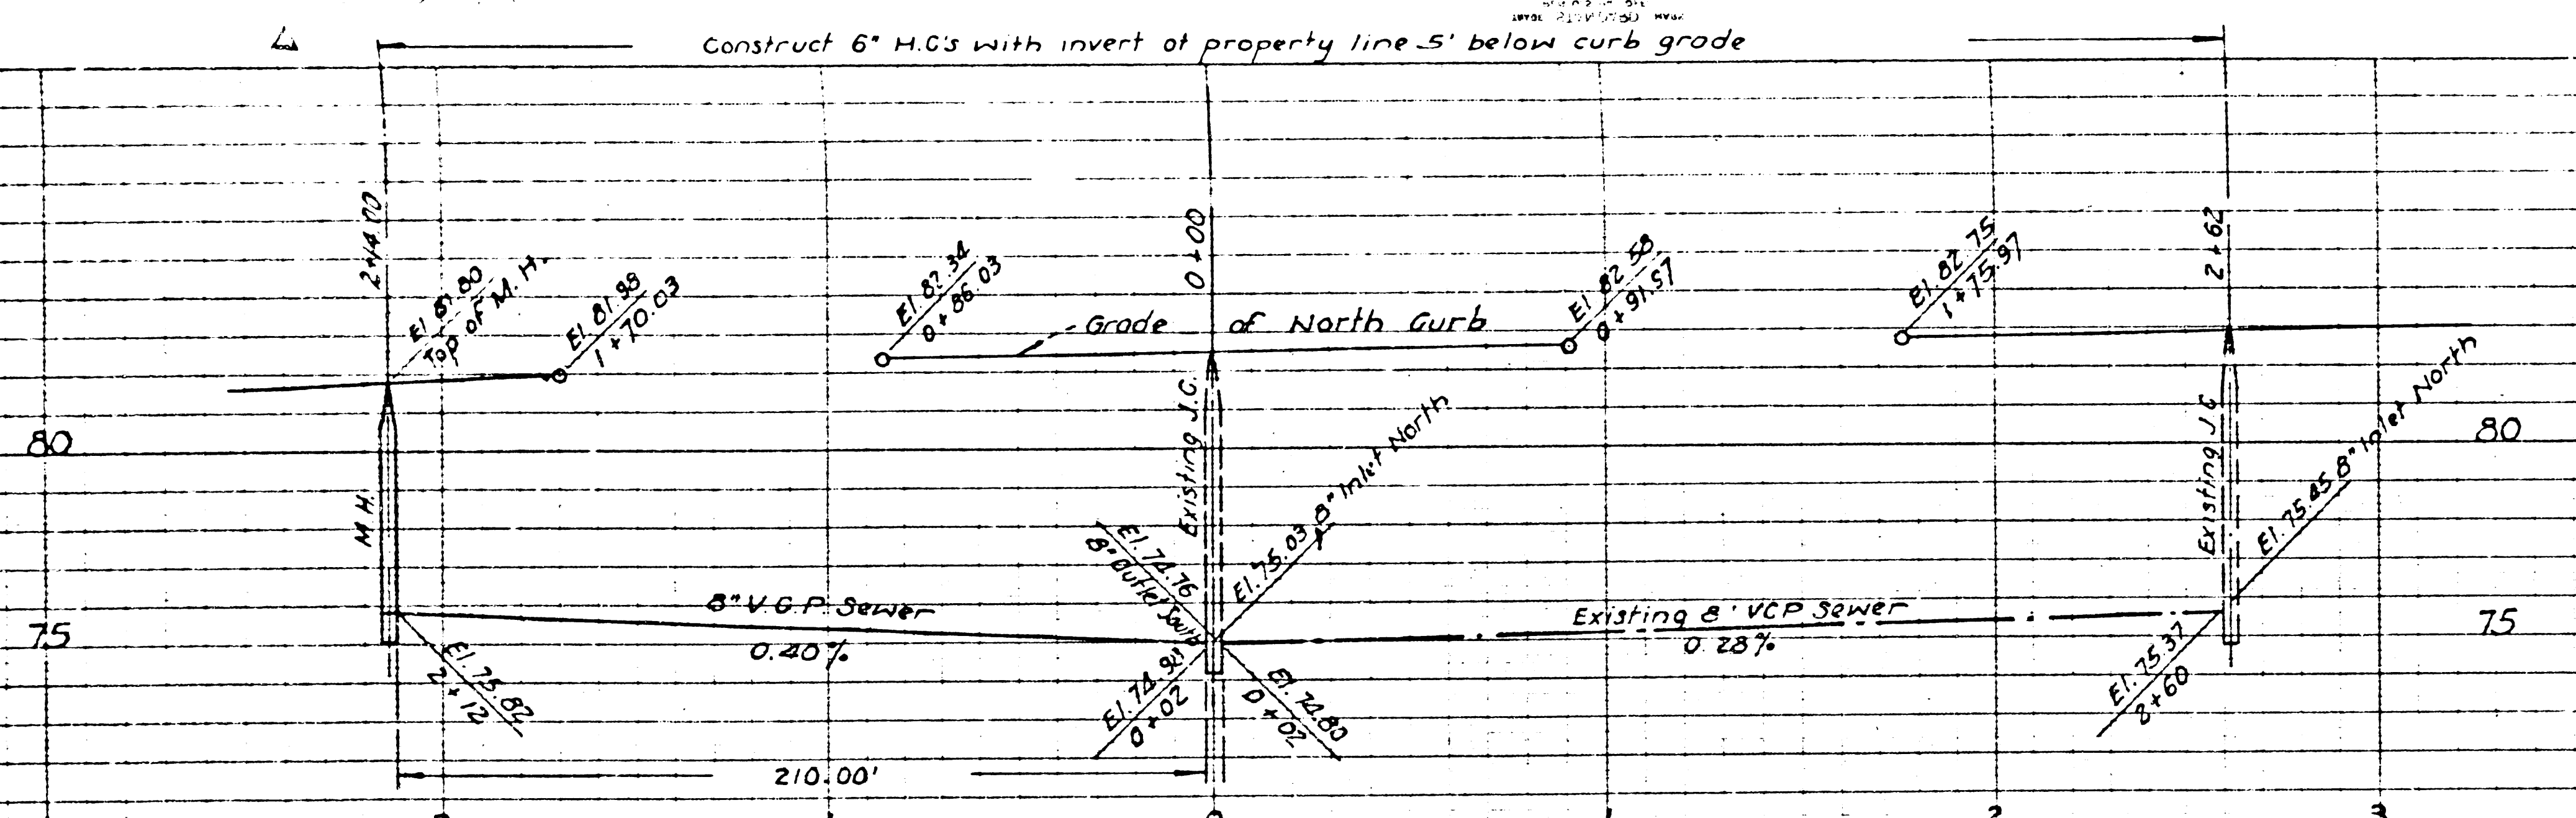 Construct 6" H.C's with invert at property line 5' below curb grade
2+14.00
0+00
2+62
El. 81.80
Top of M.H.
El. 81.98
1+70.03
El. 82.34
0+86.03
Grade of North Curb
El. 82.58
0+91.57
El. 82.75
1+75.97
80
80
M.H.
Existing J.C.
Existing J.C
El. 74.76
8" Outlet South
El. 75.03 8" Inlet North
El. 75.45 8" Inlet North
75
8" V.C.P. Sewer
0.40%
Existing 8" VCP Sewer
0.28%
75
El. 75.82
2+12
0+02
El. 74.80
0+02
El. 75.37
2+60
210.00'
2
1
0
1
2
3